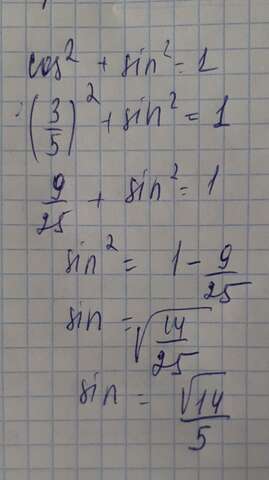 cos² + sin² = 1
(3/5)² + sin² = 1
9/25 + sin² = 1
sin² = 1 - 9/25
sin = √(14/25)
sin = √14/5